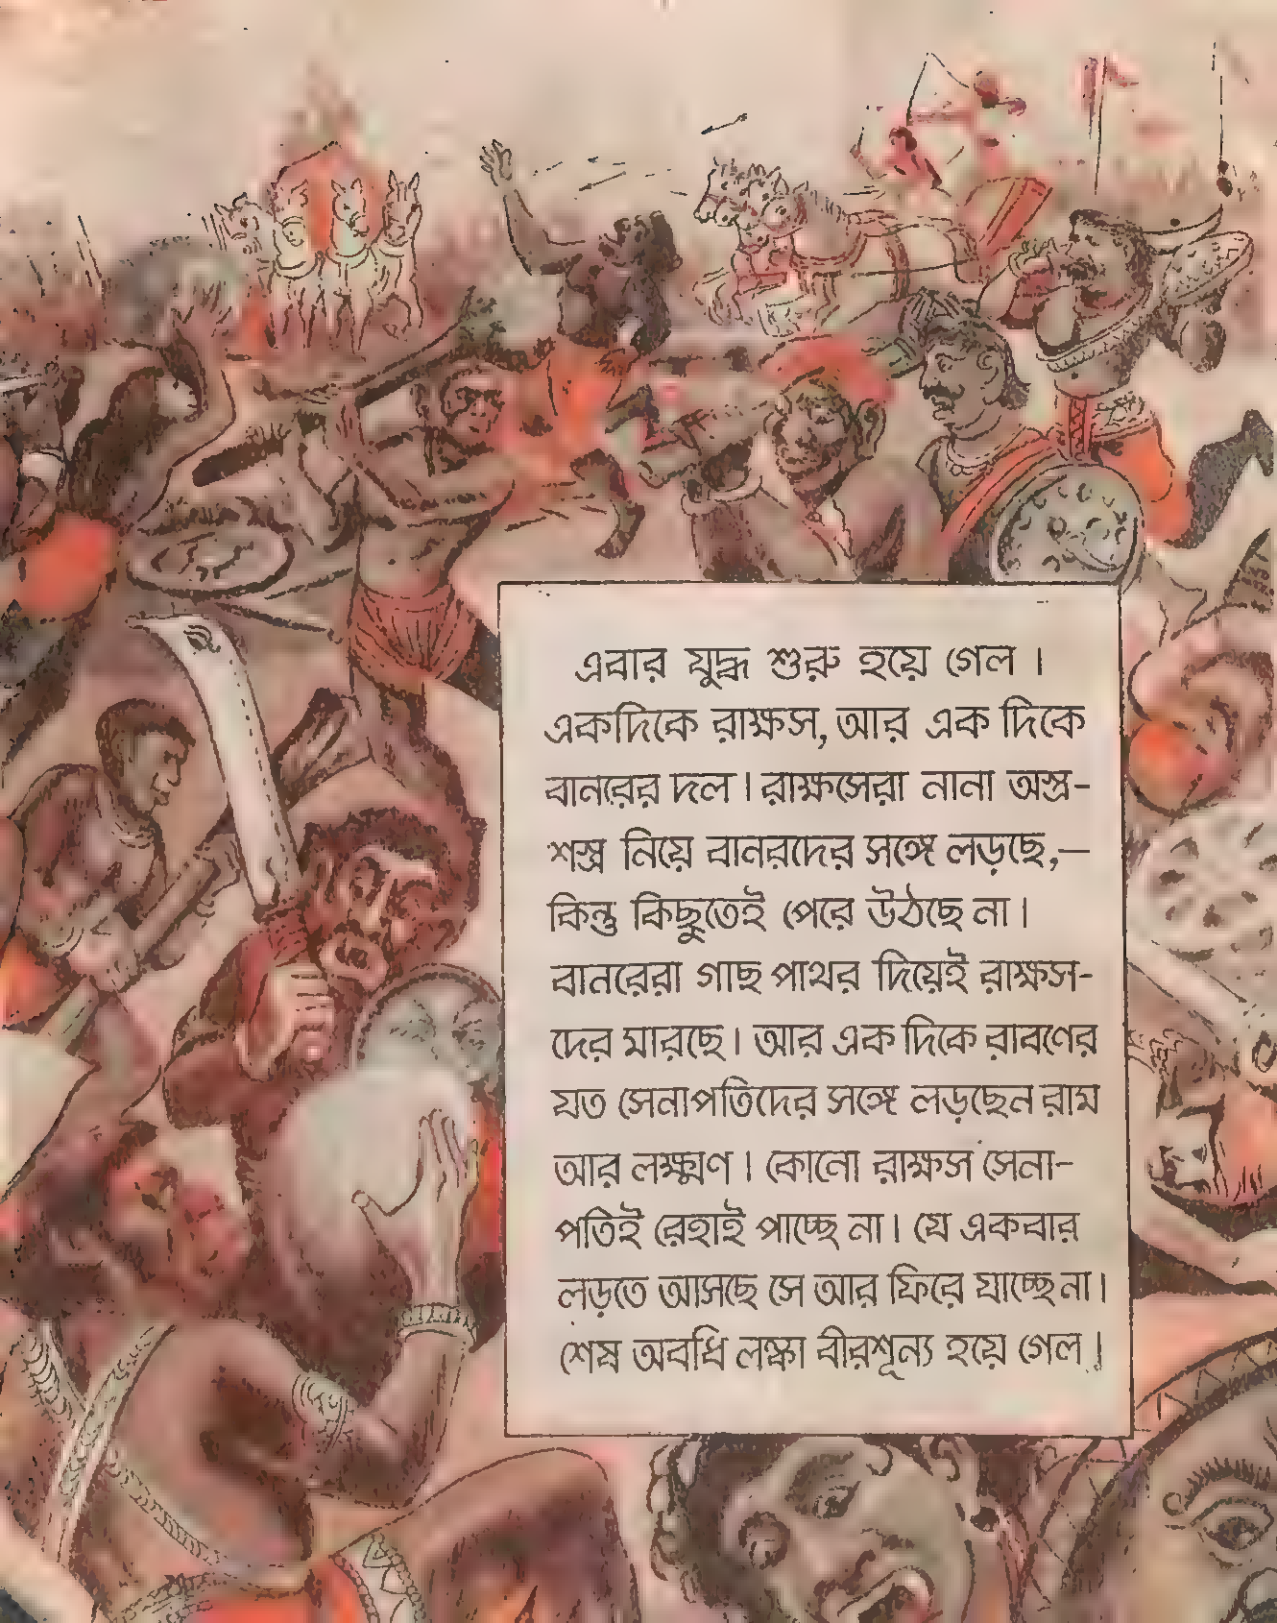 এবার যুদ্ধ শুরু হয়ে গেল।
একদিকে রাক্ষস, আর এক দিকে
বানরের দল। রাক্ষসেরা নানা অস্ত্র-
শস্ত্র নিয়ে বানরদের সঙ্গে লড়ছে,—
কিন্তু কিছুতেই পেরে উঠছে না।
বানরেরা গাছ পাথর দিয়েই রাক্ষস-
দের মারছে। আর এক দিকে রাবণের
যত সেনাপতিদের সঙ্গে লড়ছেন রাম
আর লক্ষ্মণ। কোনো রাক্ষস সেনা-
পতিই রেহাই পাচ্ছে না। যে একবার
লড়তে আসছে সে আর ফিরে যাচ্ছে না।
শেষ অবধি লঙ্কা বীরশূন্য হয়ে গেল।